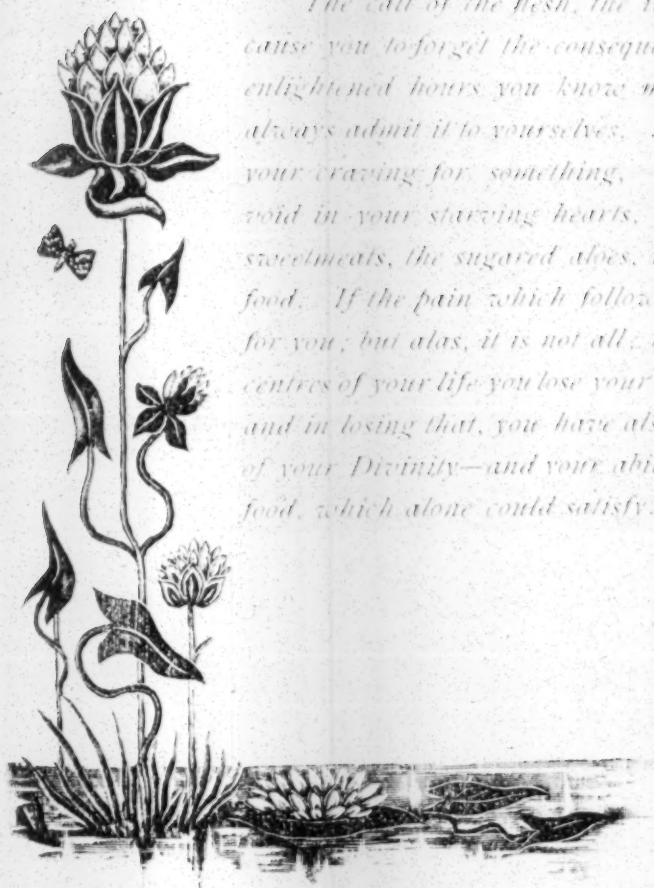 The call of the flesh, the
cause you to forget the
enlightened hours you know
always admit it to yourselves.
your craving for something,
void in your starving hearts,
sweetmeats, the sugared aloes,
food. If the pain which
for you; but alas, it is not all;
centres of your life you lose your
and in losing that, you have
of your Divinity—and your
food, which alone could satisfy